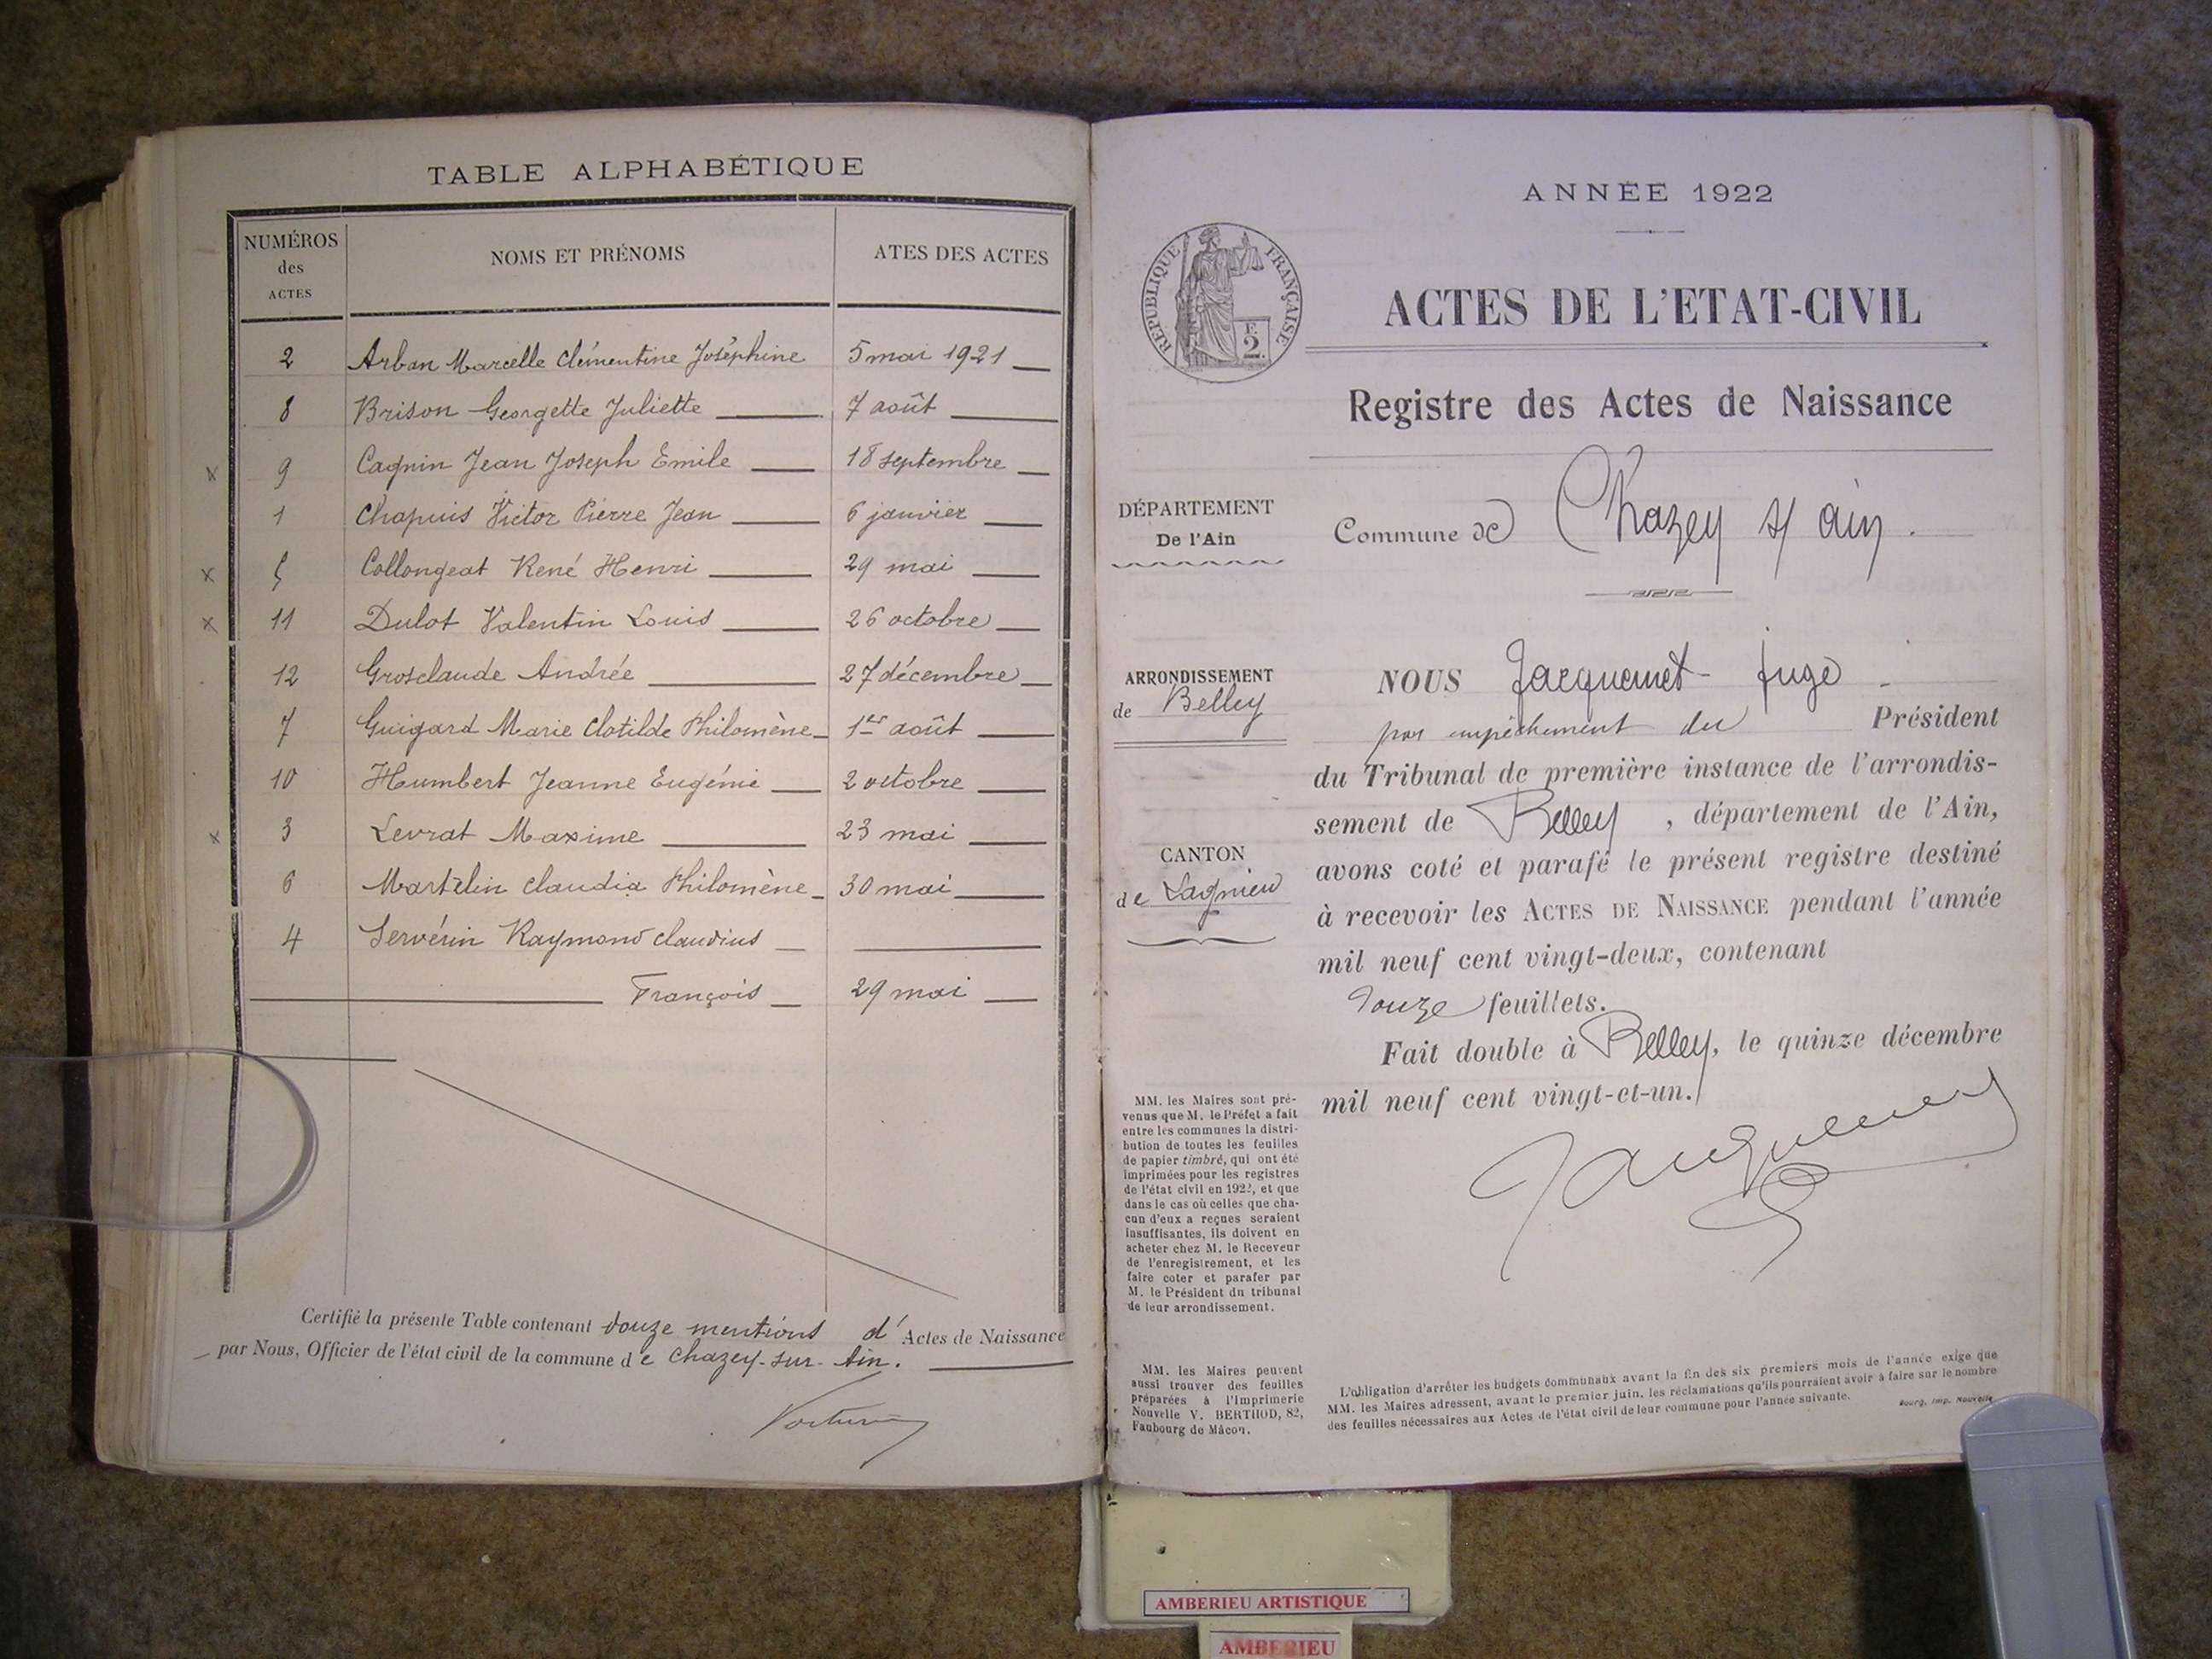 TABLE ALPHABÉTIQUE
NUMÉROS des ACTES NOMS ET PRÉNOMS ATES DES ACTES
2 Arban Marcelle Clémentine Joséphine 5 mai 1921
8 Brison Georgette Juliette 7 août
x 9 Cagnin Jean Joseph Emile 18 septembre
1 Chapuis Victor Pierre Jean 6 janvier
x 5 Collongeat René Henri 29 mai
x 11 Dulot Valentin Louis 26 octobre
12 Grosclaude Andrée 27 décembre
7 Guigard Marie Clotilde Philomène 1er août
10 Humbert Jeanne Eugénie 2 octobre
x 3 Levrat Maxime 23 mai
6 Martelin Claudia Philomène 30 mai
4 Servérin Raymond Claudius
François 29 mai
Certifié la présente Table contenant douze mentions d' Actes de Naissance
par Nous, Officier de l'état civil de la commune de Chazey-sur-Ain.
ANNÉE 1922
RÉPUBLIQUE FRANÇAISE
F.
2.
ACTES DE L'ETAT-CIVIL
Registre des Actes de Naissance
DÉPARTEMENT
De l'Ain
Commune de Chazey s/ ain.
ARRONDISSEMENT
de Belley
CANTON
de Lagnieu
NOUS Jacquemet juge
par empêchement du Président
du Tribunal de première instance de l'arrondis-
sement de Belley, département de l'Ain,
avons coté et parafé le présent registre destiné
à recevoir les ACTES DE NAISSANCE pendant l'année
mil neuf cent vingt-deux, contenant
douze feuillets.
Fait double à Belley, le quinze décembre
mil neuf cent vingt-et-un.
Jacquemet
MM. les Maires sont pré-
venus que M. le Préfet a fait
entre les communes la distri-
bution de toutes les feuilles
de papier timbré, qui ont été
imprimées pour les registres
de l'état civil en 1922, et que
dans le cas où celles que cha-
cun d'eux a reçues seraient
insuffisantes, ils doivent en
acheter chez M. le Receveur
de l'enregistrement, et les
faire coter et parafer par
M. le Président du tribunal
de leur arrondissement.
MM. les Maires peuvent
aussi trouver des feuilles
préparées à l'Imprimerie
Nouvelle V. BERTHOD, 82,
Faubourg de Mâcon.
L'obligation d'arrêter les budgets communaux avant la fin des six premiers mois de l'année exige que
MM. les Maires adressent, avant le premier juin, les réclamations qu'ils pourraient avoir à faire sur le nombre
des feuilles nécessaires aux Actes de l'état civil de leur commune pour l'année suivante.
Bourg, Imp. Nouvelle
AMBERIEU ARTISTIQUE
AMBERIEU